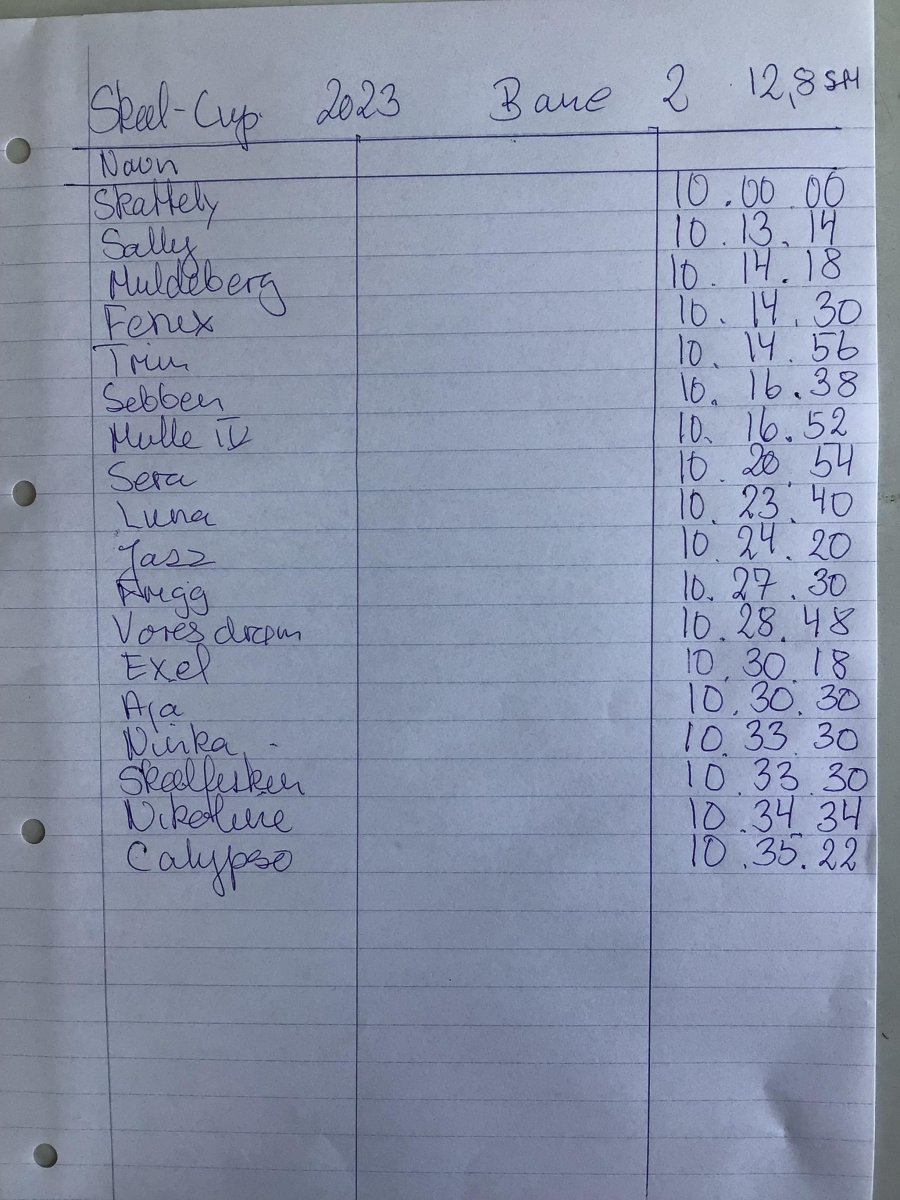 Skæl-Cup. 2023 Bane 2 12,8 SM
Navn
Skattely 10.00 00
Sally 10.13.14
Muldeberg 10.14.18
Fenix 10.14.30
Trim 10.14.56
Sebben 10.16.38
Mulle IV 10.16.52
Sera 10.20.54
Luna 10.23.40
Jasz 10.24.20
10.27.30
Vores drøm 10.28.48
Exel 10.30.18
Aja 10.30.30
Ninka 10.33.30
Skælfisken 10.33.30
Nikoline 10.34 34
Calypso 10.35.22